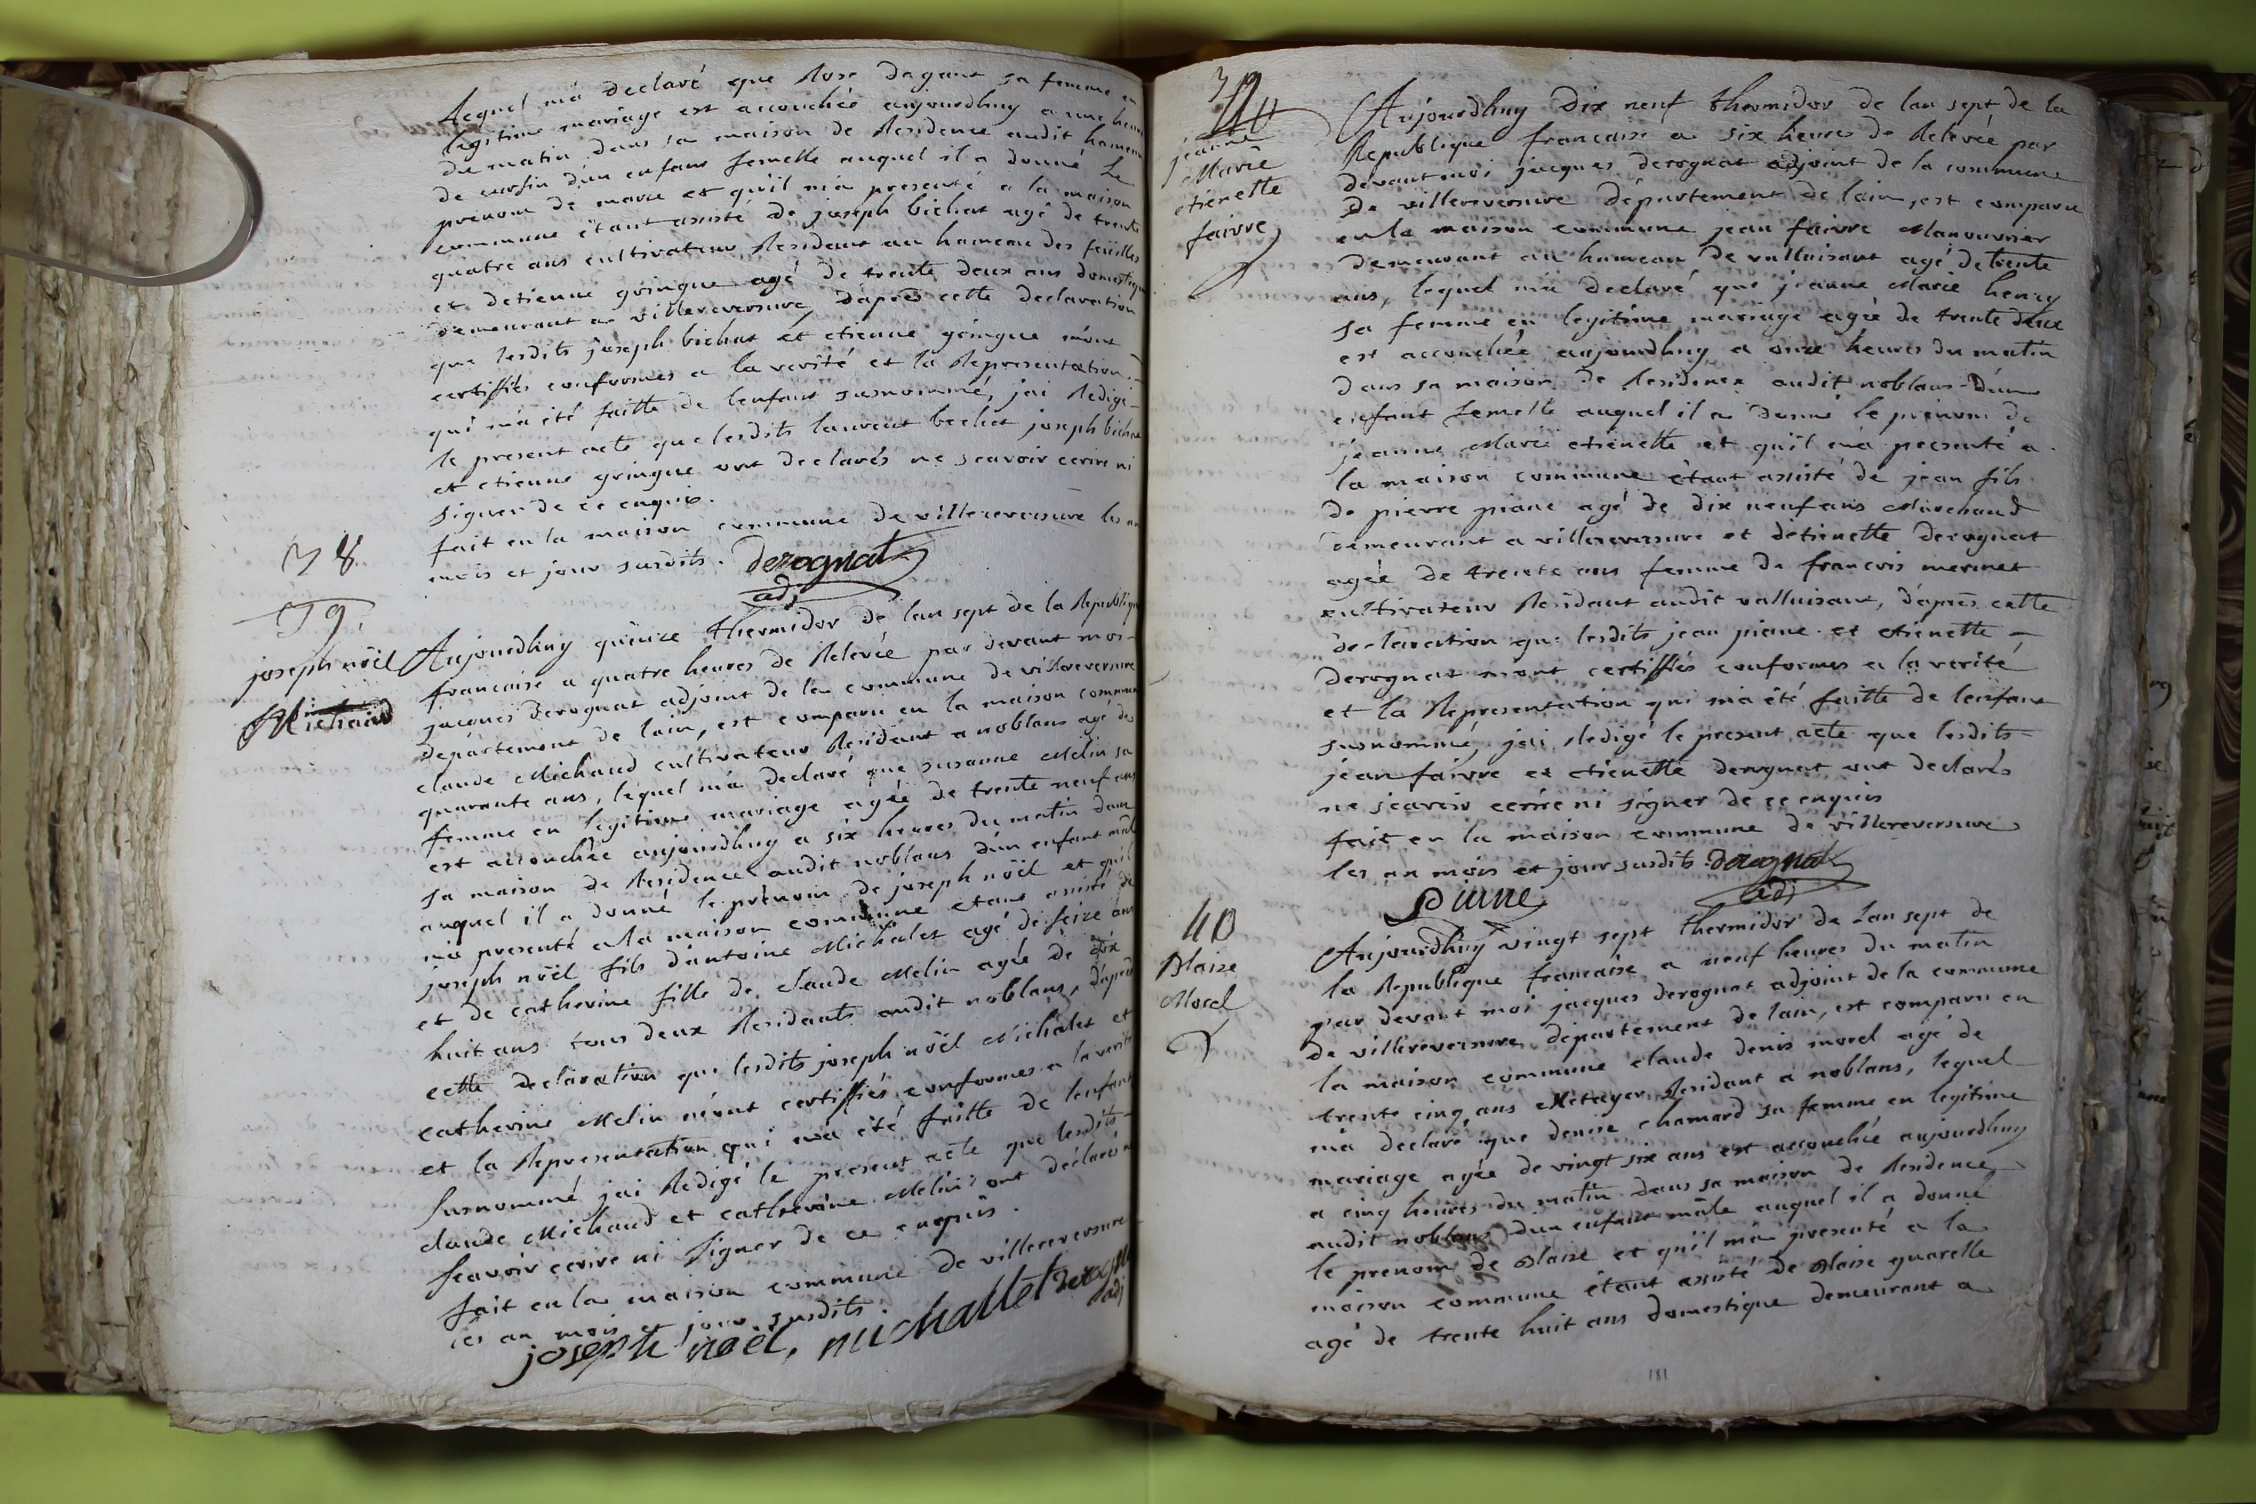 lequel m'a declaré que Rose dagant sa femme en
legitime mariage est accouchée aujourdhuy a une heure
du matin dans sa maison de Residence audit hameau
de cursin d'un enfant femelle auquel il a donné le
prenom de marie et qu'il m'a presenté a la maison
commune étant assisté de joseph bichat agé de trente
quatre ans cultivateur Residant au hameau des feuilles
et detienne gringue agé de trente deux ans domestique
demeurant a villereversure, d'après cette declaration
que lesdits joseph bichat et etienne gringue m'ont
certiffiés conformes a la verité et la Representation
qui m'a été faitte de lenfant susnommé, jai Redigé
le present acte que lesdits laurent bechat joseph bichat
et etienne gringue ont declarés ne scavoir ecrire ni
signer de ce enquis.
fait en la maison commune de villereversure les an
mois et jour susdits. derognat
adj
38
39.
joseph noël
Michaud
Aujourdhuy quinze thermidor de lan sept de la Republique
francaise a quatre heures de Relevée par devant moi
jacques derognat adjoint de la commune de villereversure
departement de lain, est comparu en la maison commune
claude Michaud cultivateur Residant a noblans agé de
quarante ans, lequel m'a declaré que susanne Melin sa
femme en legitime mariage agée de trente neuf ans
est accouchée aujourdhuy a six heures du matin dans
sa maison de Residence audit noblans d'un enfant mâle
auquel il a donné le prenom de joseph noël et qu'il
m'a presenté a la maison commune etant assisté de
joseph noël fils d'antoine Michalet agé de seize ans
et de catherine fille de claude Melin agée de dix
huit ans tous deux Residants audit noblans, d'après
cette declaration que lesdits joseph noël Michalet et
catherine Melin m'ont certiffiés conformes a la verité
et la Representation qui m'a été faitte de lenfant
susnommé jai Redigé le present acte que lesdits
claude Michaud et catherine Melin ont déclarés ne
scavoir ecrire ni signer de ce enquis.
fait en la maison commune de villereversure
les an mois et jour susdits.
joseph noël, michallet derognat
adj
39
40
jeanne
Marie
etienette
faivre
Aujourdhuy Dix neuf thermidor de lan sept de la
Republique francaise a six heures de Relevée par
devant moi jacques derognat adjoint de la commune
de villereversure département de lain, est comparu
en la maison commune jean faivre Manouvrier
demeurant au hameau de valluisant agé de trente
ans, lequel m'a declaré que jeanne Marie henry
sa femme en legitime mariage agée de trente deux
est accouchée aujourdhuy a onze heures du matin
dans sa maison de Residence audit noblans d'un
enfant femelle auquel il a donné le prenom de
jeanne Marie etienette et qu'il m'a presenté a
la maison commune étant assisté de jean fils
de pierre piane agé de dix neuf ans
demeurant a villereversure et detienette derognat
agée de trente ans femme de francois mermet
cultivateur Residant audit valluisant, d'après cette
declaration que lesdits jean piane et etienette
derognat mont certiffiés conformes a la verité
et la Representation qui m'a été faitte de lenfant
susnommé, jai Redigé le present acte que lesdits
jean faivre et etienette derognat ont declarés
ne scavoir ecrire ni signer de ce enquis
fait en la maison commune de villereversure
les an mois et jour susdits. derognat
adj
piane
40
Blaise
Morel
Aujourdhuy vingt sept thermidor de lan sept de
la Republique francaise a neuf heures du matin
par devant moi jacques derognat adjoint de la commune
de villereversure departement de lain, est comparu en
la maison commune claude denis morel agé de
trente cinq ans Metayer Residant a noblans, lequel
m'a declaré que denise chamard sa femme en legitime
mariage agée de vingt six ans est accouchée aujourdhuy
a cinq heures du matin dans sa maison de Residence
audit noblans d'un enfant mâle auquel il a donné
le prenom de Blaise et qu'il m'a presenté a la
maison commune étant assisté de Blaise quarelle
agé de trente huit ans domestique demeurant a
181